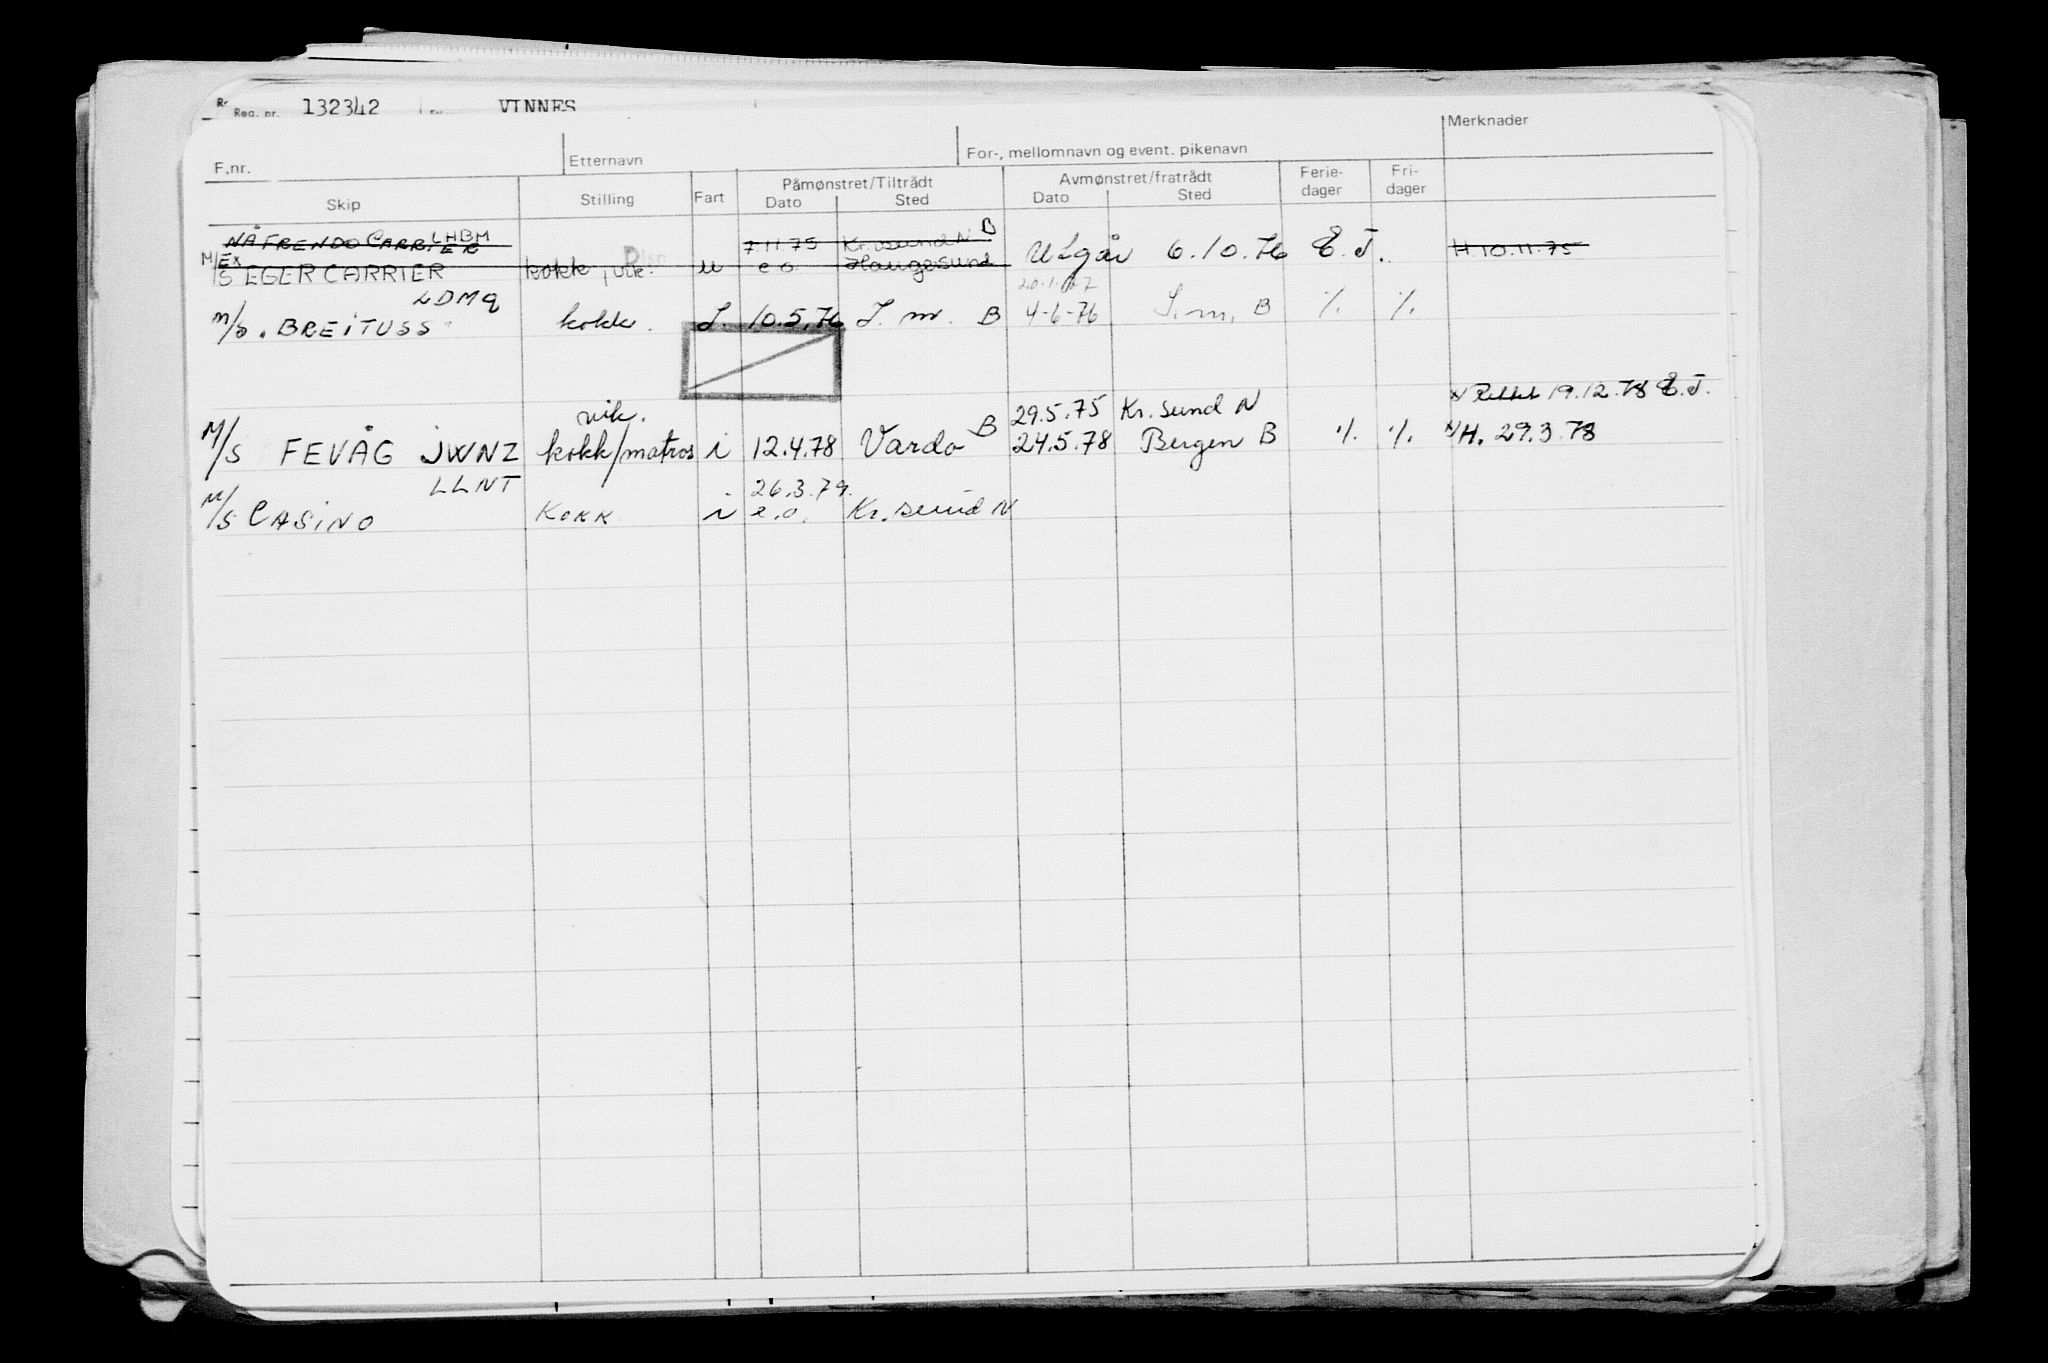 Reg. nr. 132342 VINNES
Merknader
F.nr. Etternavn For-, mellomnavn og event. pikenavn
Skip Stilling Fart Påmønstret/Tiltrådt Avmønstret/fratrådt Ferie-dager Fri-dager
Dato Sted Dato Sted
NÅFRENDO CARRIER LHBM 7.11.75 Kr.sund N B
M/S EX EGER CARRIER kokk, vik. u e.o. Haugesund Utgår 6.10.76 E.J. H.10.11.75
LDMQ
M/S. BREITUSS kokk. I. 10.5.76 I. m. B 4-6-76 I.m. B ./. ./.
19.12.78 E.J.
vik. 29.5.75 Kr. sund N
M/S FEVÅG JWNZ kokk/matros i 12.4.78 Vardø B 24.5.78 Bergen B ./. ./. N/H. 29.3.78
LLNT 26.3.79.
M/S CASINO KOKK i e.o. Kr. sund N